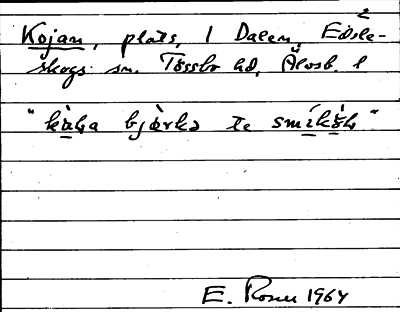 Kojan, plats, 1 Dalen, Edsle-
skogs sn. Tössbo hd, Älvsb. l
"kɑ̀ɩ̣a bjærkə te smíkɔ̀ɩ̣"
E. Rosen 1964